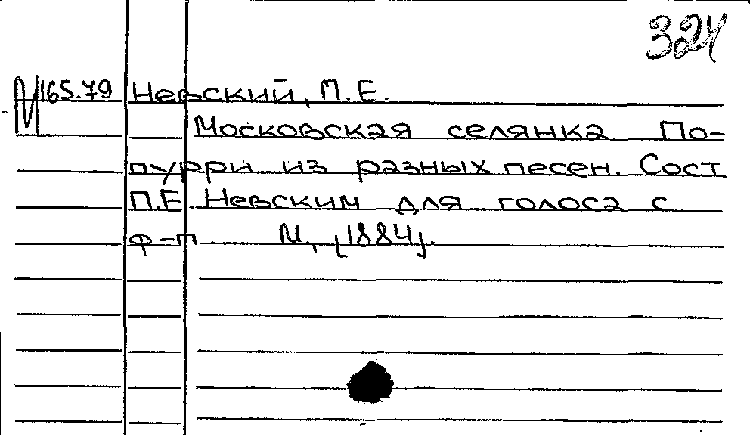 324
М165.79 Невский, П.Е.
Московская селянка По-
пурри из разных песен. Сост
П.Е. Невским для голоса с
ф-п М., [1884].